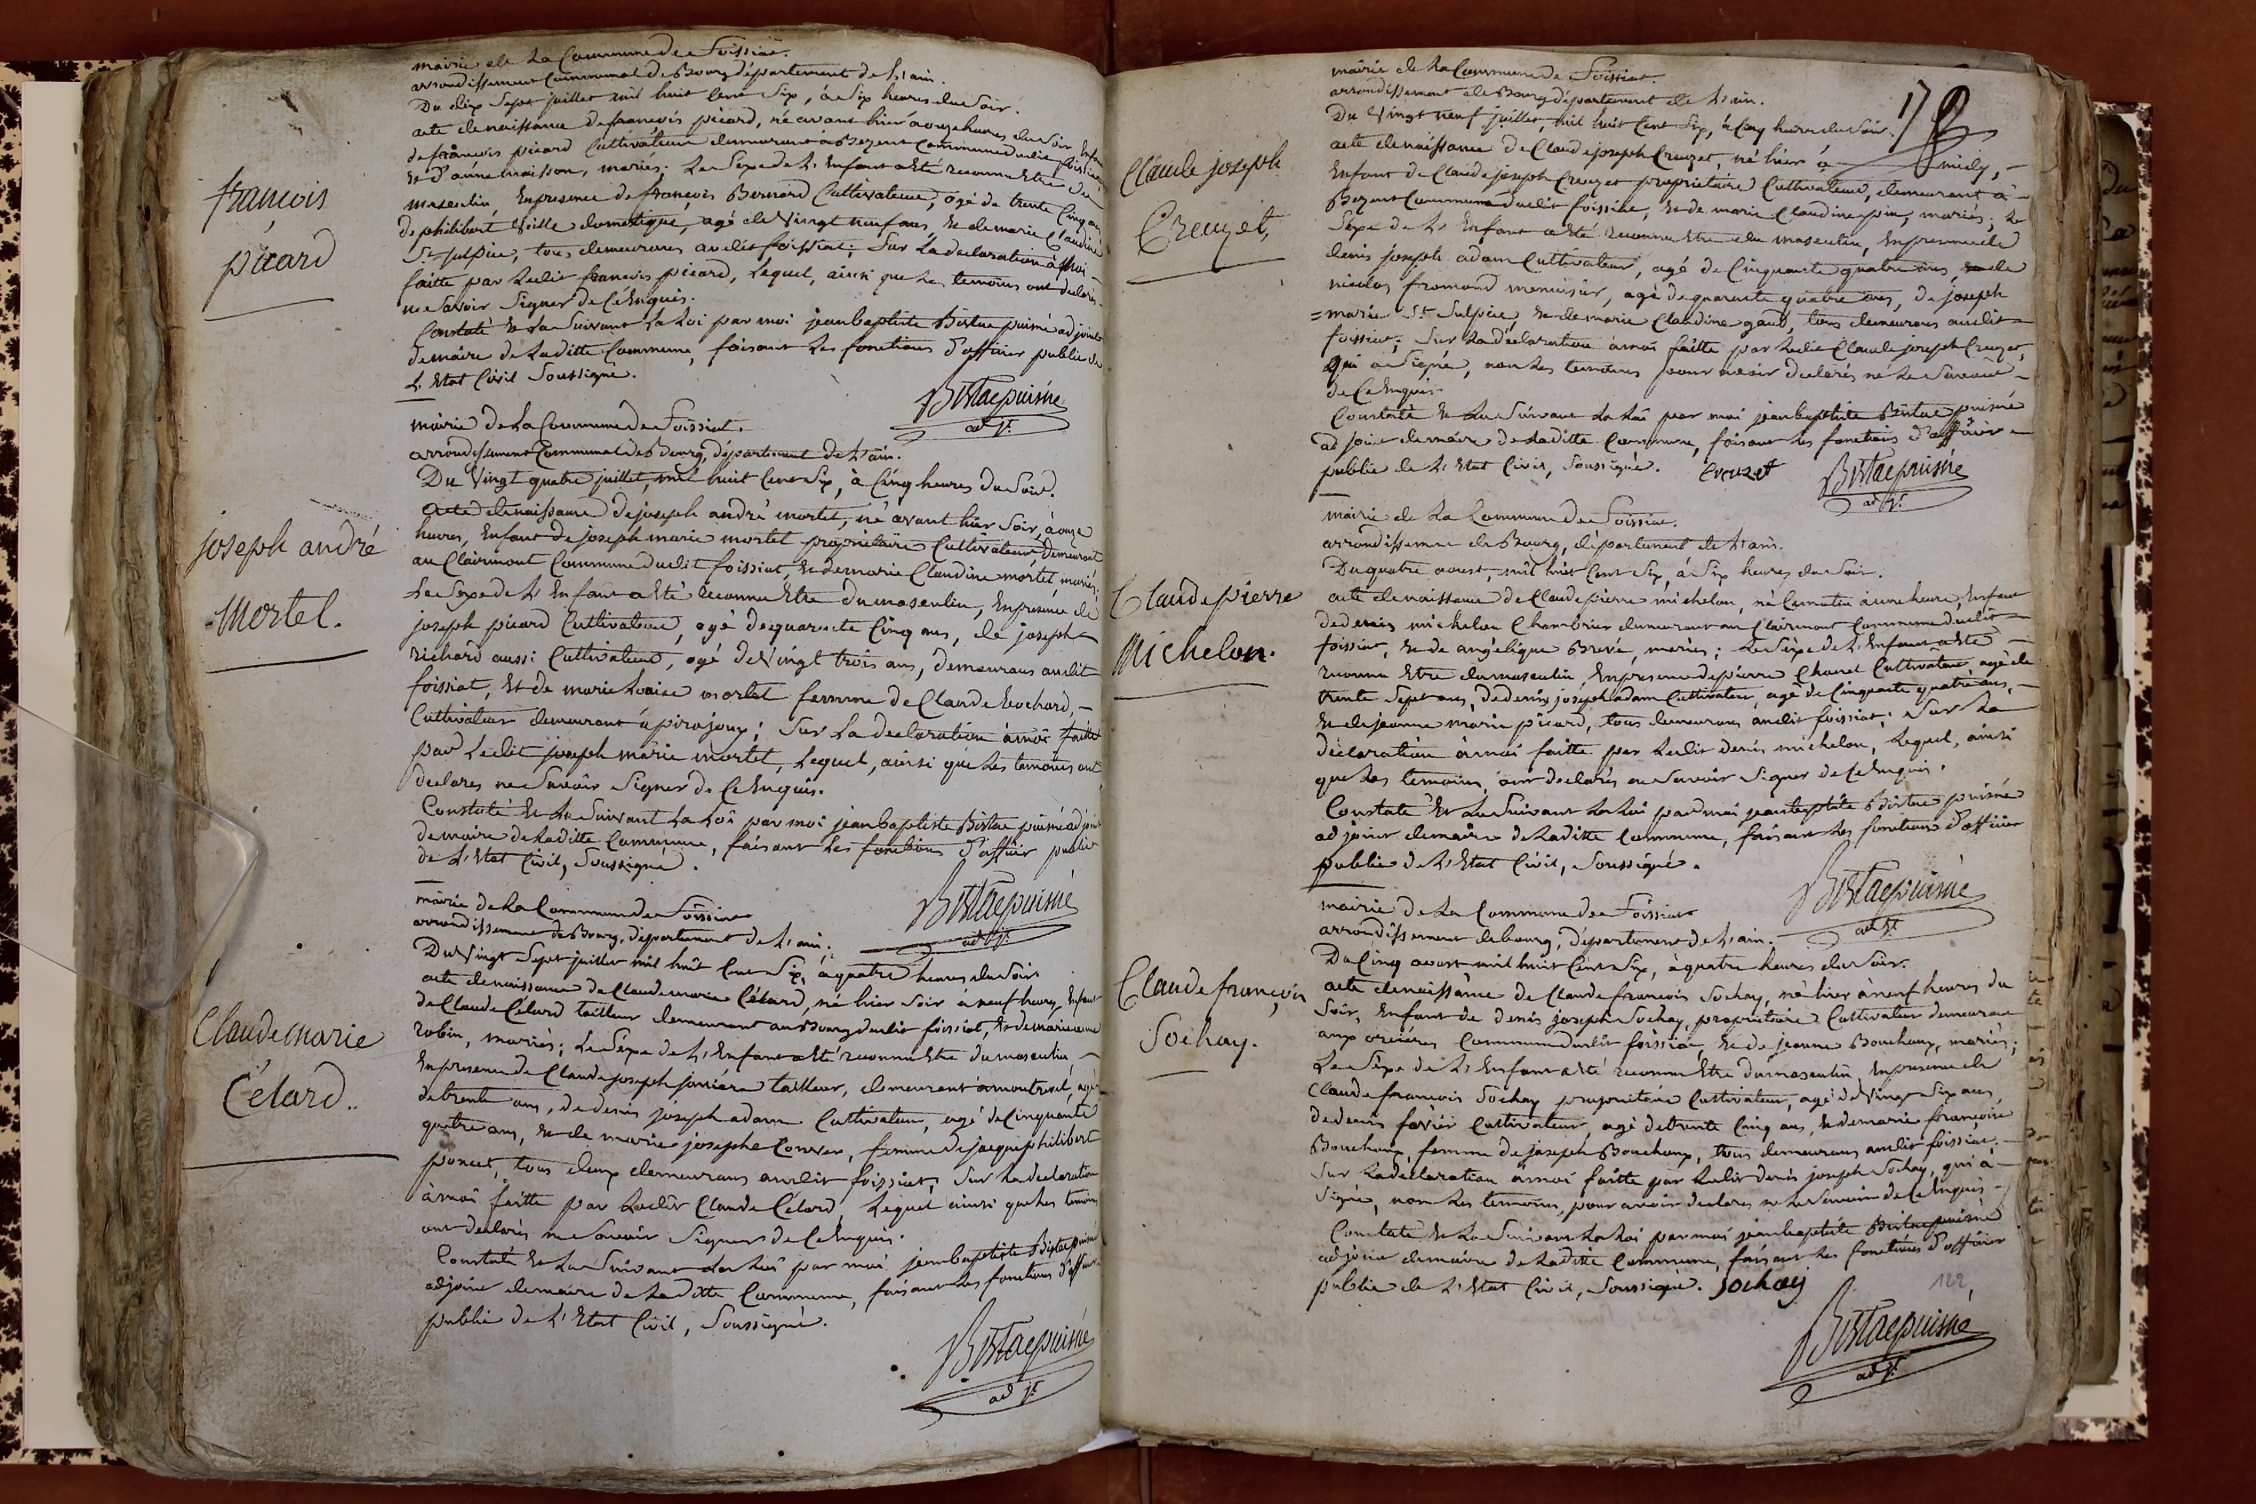 mairie de la Commune de Foissiat.
arrondissement Communal de Bourg département de L'ain.
Du dix Sept juillet mil huit Cent Six, à Six heures du Soir.
acte de naissance de françois picard, né avant hier à onze heures du Soir Enfant
de françois picard Cultivateur demeurant à Bezent Commune dudit foissiat,
Et d'anne maisson, mariés; Le Sexe de L'Enfant a Eté reconnu Etre du
masculin, En presence de françois Bernard Cultivateur, agé de trente Cinq ans
de philibert Voille domestique, agé de Vingt neuf ans, Et de marie Claudine
St. Sulpice, tous demeurans audit foissiat; Sur La declaration à Moi
faitte par Ledit françois picard, Lequel, ainsi que Les temoins ont declarés
ne Savoir Signer de Ce Enquis.
Constaté Et Lu Suivant La Loi par moi jean baptiste Bistac puisné adjoint
de maire de Laditte Commune, faisant Les fonctions d'officier public de
L'Etat Civil Soussigné.
Bistac puisné
adjt.
françois
picard
mairie de La Commune de Foissiat.
arrondissement Communal de Bourg, département de L'ain.
Du Vingt quatre juillet, mil huit Cent Six, à Cinq heures du Soir.
acte de naissance de joseph andré mortel, né avant hier Soir, à onze
heures, Enfant de joseph marie mortel propriétaire Cultivateur demeurant
au Clairmont Commune dudit foissiat, Et de marie Claudine mortel, mariés;
Le Sexe de L'Enfant a Eté reconnu Etre du masculin, En presence de
joseph picard Cultivateur, agé de quarante Cinq ans, de joseph
richard aussi Cultivateur, agé de Vingt trois ans, demeurans audit
foissiat, Et de marie Louise mortel femme de Claude bochard,
Cultivateur demeurant à pirajoux; Sur La declaration à moi faitte
par Ledit joseph marie mortel, Lequel, ainsi que Les temoins ont
declarés ne Savoir Signer de Ce Enquis.
Constaté Et Lu Suivant La Loi par moi jean baptiste Bistac puisné adjoint
de maire de Laditte Commune, faisant Les fonctions d'officier public
de L'Etat Civil, Soussigné.
Bistac puisné
adjt.
joseph andré
Mortel.
mairie de La Commune de Foissiat
arrondissement de Bourg, département de L'ain.
Du Vingt Sept juillet mil huit Cent Six, à quatre heures du Soir
acte de naissance de Claude marie Célard, né hier Soir a neuf heures, Enfant
de Claude Célard tailleur demeurant au Bourg dudit foissiat, Et de marie anne
robin, mariés; Le Sexe de L'Enfant a Eté reconnu Etre du masculin
En presence de Claude joseph tailleur, demeurant à montrevel, agé
de trente ans, de denis joseph adam Cultivateur, agé de Cinquante
quatre ans, Et de marie josephe Convers, femme de jacque philibert
poncet, tous deux demeurans audit foissiat; Sur La declaration
à moi faitte par Ledit Claude Célard, Lequel ainsi que Les temoins
ont declarés ne Savoir Signer de Ce Enquis.
Constaté Et Lu Suivant La Loi par moi jean baptiste Bistac puisné
adjoint de maire de Laditte Commune, faisant Les fonctions d'officier
public de L'Etat Civil, Soussigné.
Bistac puisné
adjt.
Claude marie
Célard.
mairie de La Commune de Foissiat.
arrondissement de Bourg département de L'ain.
Du Vingt neuf juillet, mil huit Cent Six, à Cinq heures du Soir.
acte de naissance de Claude joseph Creuzet, né hier à midy,
Enfant de Claude joseph Creuzet propriétaire Cultivateur, demeurant à
Bezent Commune dudit foissiat, Et de marie Claudine pin, mariés; Le
Sexe de L'Enfant a Eté reconnu Etre du masculin, En presence de
denis joseph adam Cultivateur, agé de Cinquante quatre ans, de
nicolas fromond menuisier, agé de quarante quatre ans, de joseph
marie St. Sulpice, Et de marie Claudine gaud, tous demeurans audit
foissiat; Sur La déclaration à moi faitte par Ledit Claude joseph Creuzet,
qui a Signé, non Les temoins pour avoir declarés ne Le Savoir
de Ce Enquis.
Constaté Et Lu Suivant La Loi par moi jean baptiste Bistac puisné
adjoint de maire de Laditte Commune, faisant Les fonctions d'officier
public de L'Etat Civil, Soussigné. Creuzet
Bistac puisné
adjt.
Claude joseph
Creuzet,
mairie de La Commune de Foissiat.
arrondissement de Bourg, département de L'ain.
Du quatre aoust, mil huit Cent Six, à Six heures du Soir.
acte de naissance de Claude pierre michelon, né Ce matin à une heure, Enfant
de denis michelon Chambrier demeurant au Clairmont Commune dudit
foissiat, Et de angélique Brevé, mariés; Le Sexe de L'Enfant a Eté
reconnu Etre du masculin, En presence de pierre Chanel Cultivateur, agé de
trente Sept ans, de denis joseph adam Cultivateur, agé de Cinquante quatre ans,
Et de jeanne marie picard, tous demeurans audit foissiat; Sur La
déclaration à moi faitte par Ledit denis michelon, Lequel, ainsi
que Les temoins, ont declarés ne Savoir Signer de Ce Enquis.
Constaté Et Lu Suivant La Loi par moi jean baptiste Bistac puisné
adjoint de maire de Laditte Commune, faisant Les fonctions d'officier
public de L'Etat Civil, Soussigné.
Bistac puisné
adjt.
Claude pierre
Michelon.
mairie de La Commune de Foissiat
arrondissement de bourg, département de L'ain.
Du Cinq aoust mil huit Cent Six, à quatre heures du Soir.
acte de naissance de Claude françois Sochay, né hier à neuf heures du
Soir, Enfant de denis joseph Sochay, propriétaire Cultivateur demeurant
aux Commune dudit foissiat, Et de jeanne Bouchoux, mariés;
Le Sexe de L'Enfant a Eté reconnu Etre du masculin, En presence de
Claude françois Sochay propriétaire Cultivateur, agé de Vingt Six ans,
de denis favier Cultivateur, agé de trente Cinq ans, Et de marie françoise
Bouchoux, femme de joseph Bouchoux, tous demeurans audit foissiat.
Sur La declaration à moi faitte par Ledit denis joseph Sochay, qui a
Signé, non Les temoins, pour avoir declarés ne Le Savoir de Ce Enquis
Constaté Et Lu Suivant La Loi par moi jean baptiste Bistac puisné
adjoint de maire de Laditte Commune, faisant Les fonctions d'officier
public de L'Etat Civil, Soussigné. Sochay
122
Bistac puisné
adjt.
Claude françois
Sochay.